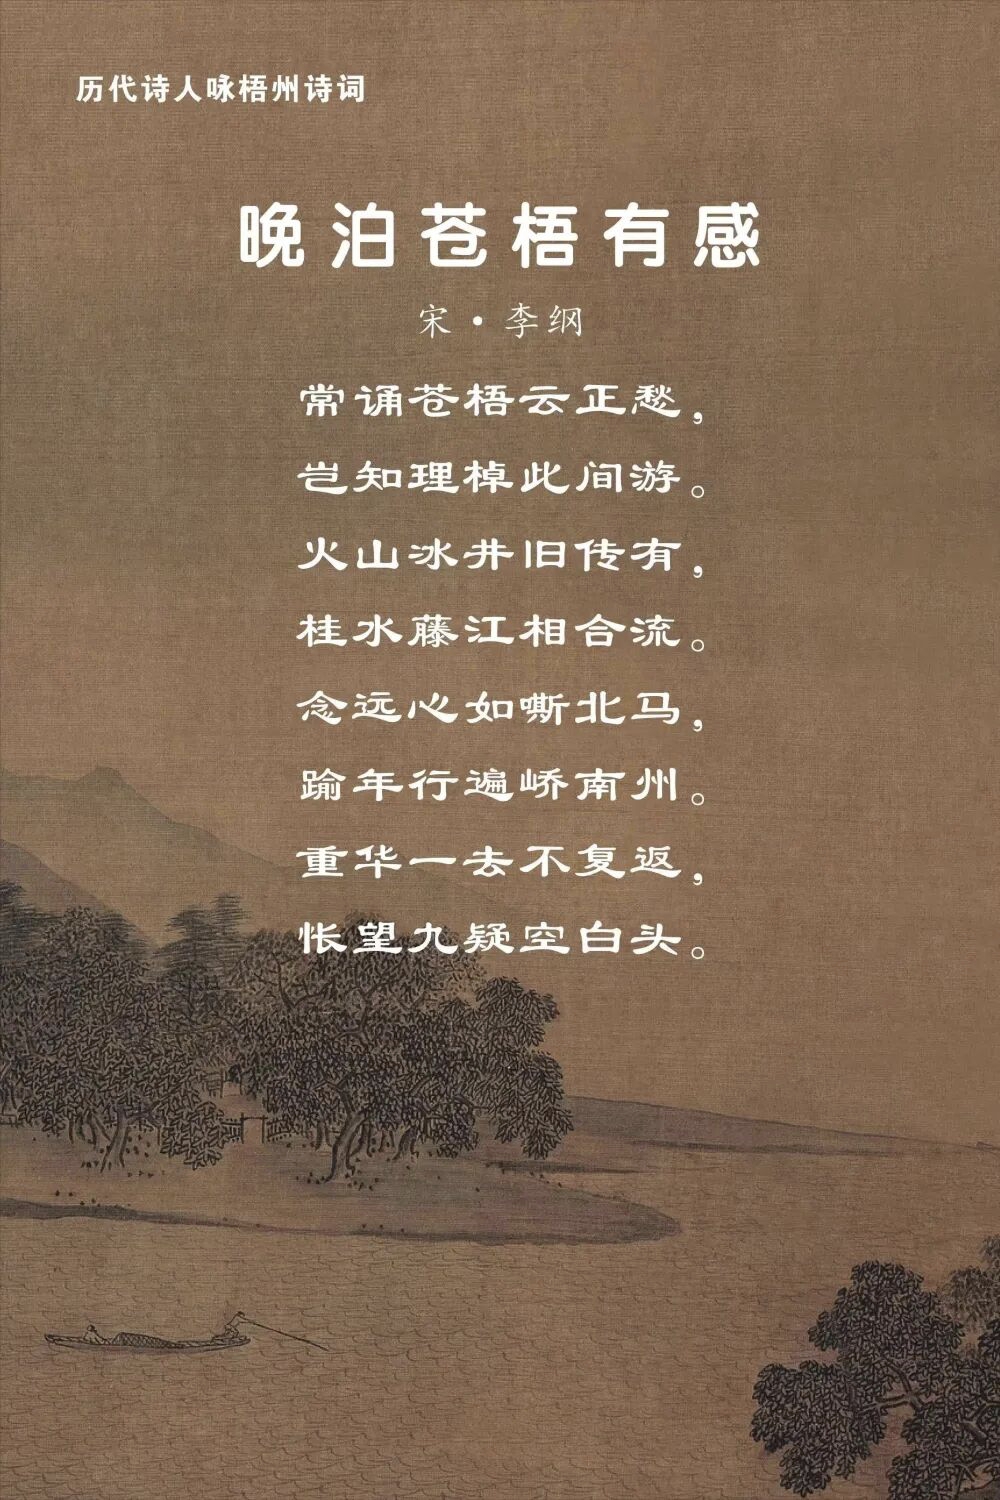 历代诗人咏梧州诗词
晚泊苍梧有感
宋·李纲
常诵苍梧云正愁，
岂知理棹此间游。
火山冰井旧传有，
桂水藤江相合流。
念远心如嘶北马，
踰年行遍峤南州。
重华一去不复返，
怅望九疑空白头。